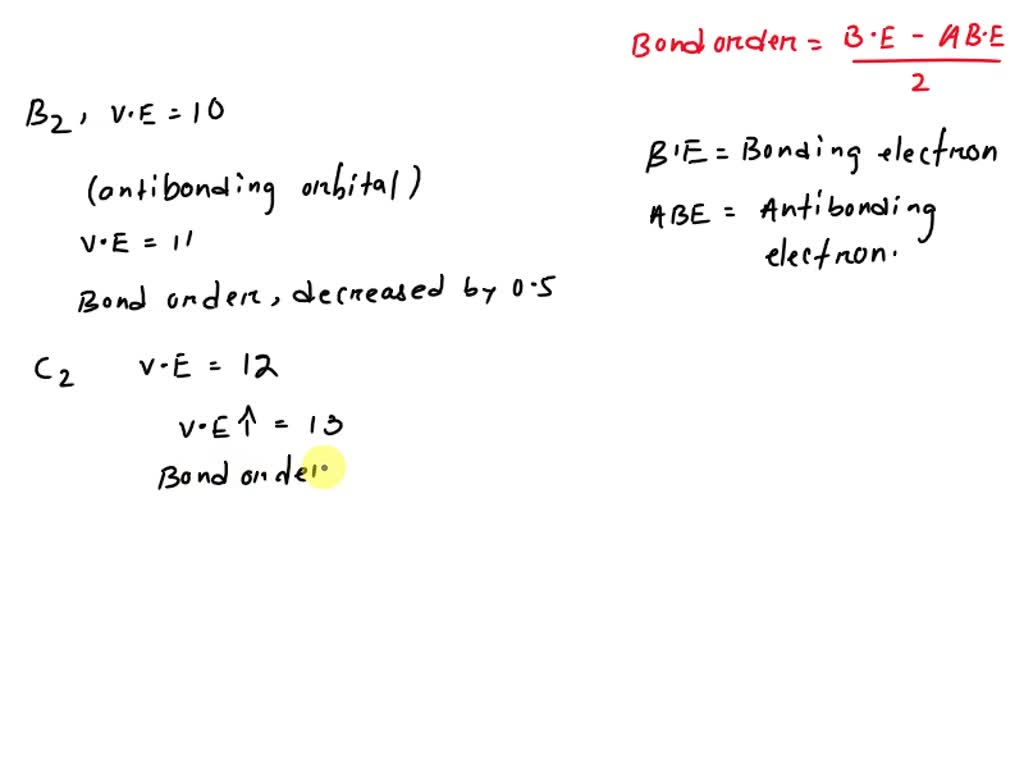 Bond order = B·E - AB·E
2
B2, V·E = 10
B·E = Bonding electron
(antibonding orbital)
ABE = Antibonding
electron.
V·E = 11
Bond order, decreased by 0.5
C2 V·E = 12
V·E↑ = 13
Bond order